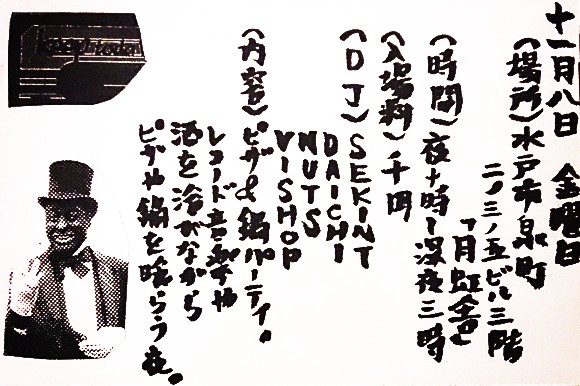 十一月八日 金曜日
(場所)水戸市泉町
二ノ三ノ五ビル三階
「月虹舎」
(時間)夜十時〜深夜三時
(入場料)千円
(DJ) SEKINT
DAICHI
NUTS
VISHOP
(内容)ピザ&鍋パーティ。
レコード音楽や
酒を浴びながら
ピザや鍋を喰らう夜。